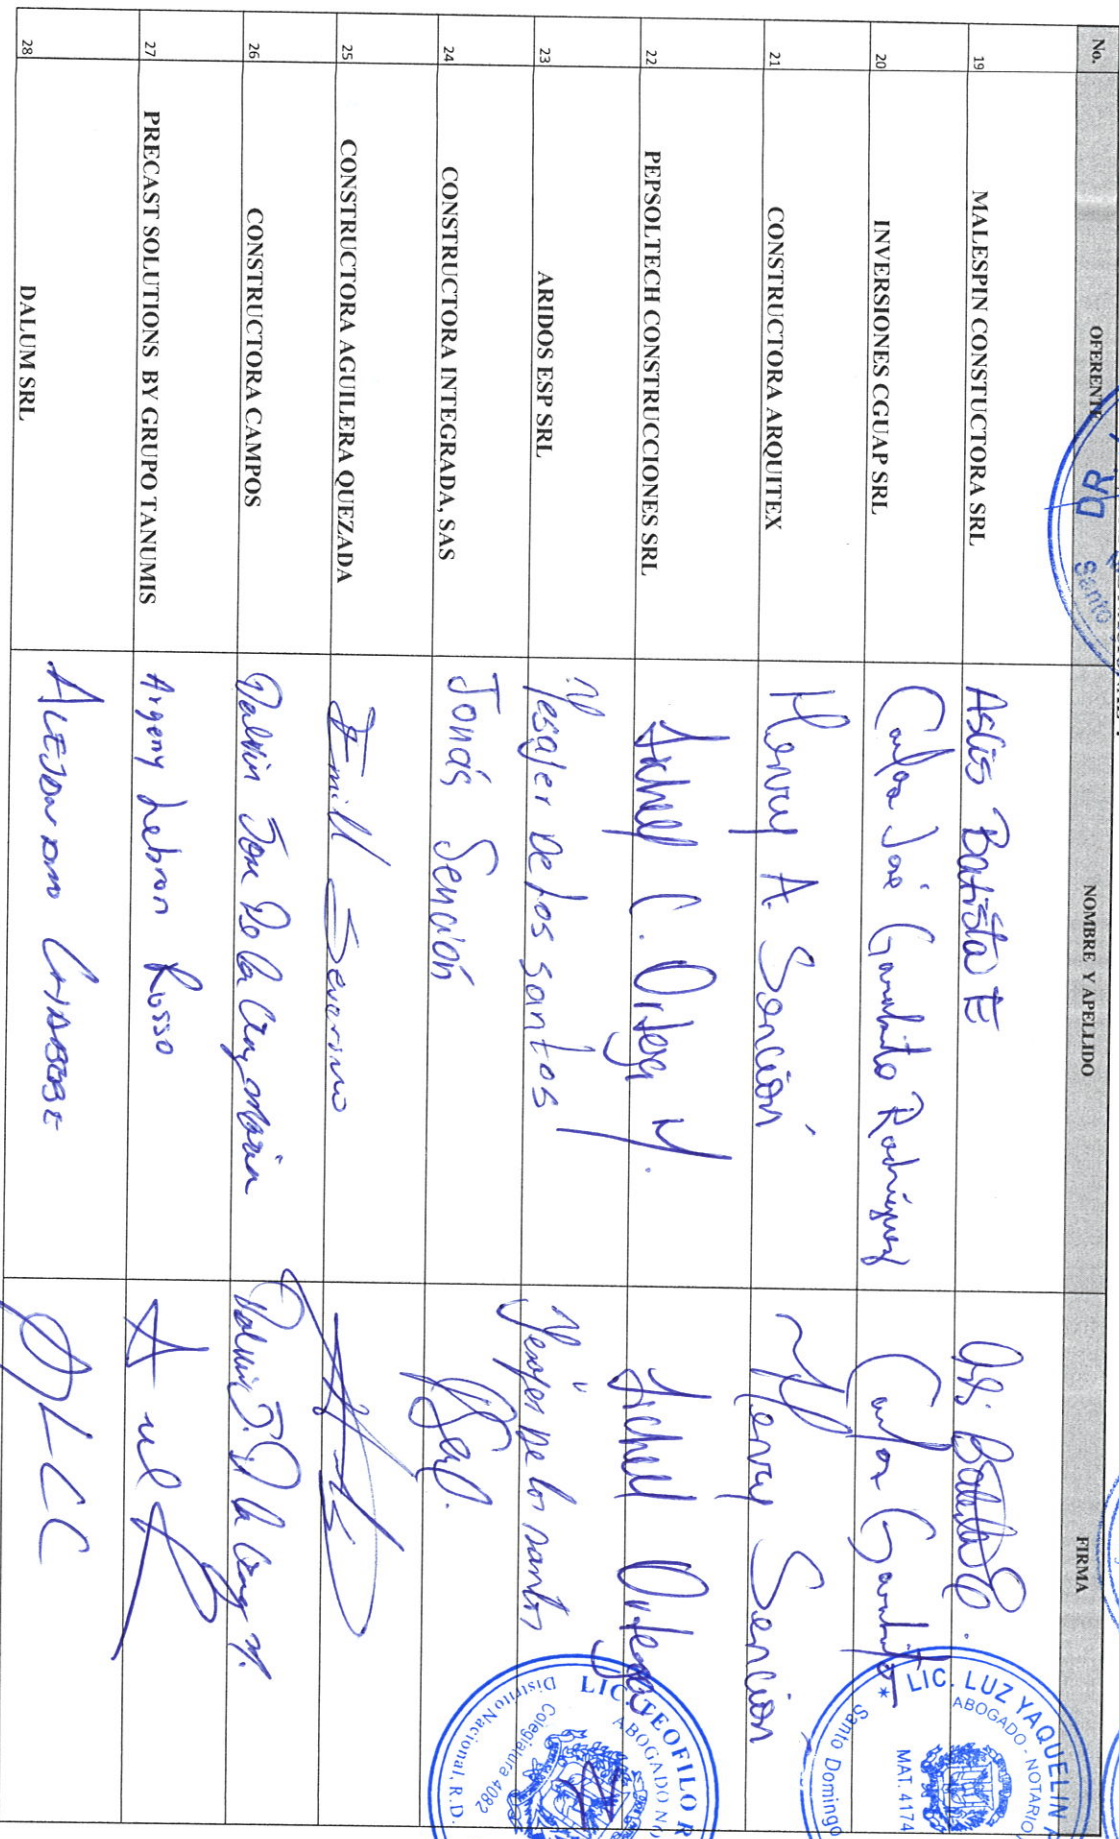 No. OFERENTE NOMBRE Y APELLIDO FIRMA
DR
Santo
19 MALESPIN CONSTUCTORA SRL Batista E
20 INVERSIONES CGUAP SRL Carlos José Garabito Rodríguez Carlos Garabito
21 CONSTRUCTORA ARQUITEX Henry A. Sención Henry Sención
22 PEPSOLTECH CONSTRUCCIONES SRL C. Ortega M. Ortega
23 ARIDOS ESP SRL De los santos De los santos
24 CONSTRUCTORA INTEGRADA, SAS Jonás Sención
25 CONSTRUCTORA AGUILERA QUEZADA Emill Severino
26 CONSTRUCTORA CAMPOS De la Cruz
27 PRECAST SOLUTIONS BY GRUPO TANUMIS Argeny Lebron Russo
28 DALUM SRL
LIC. LUZ YAQUELIN
ABOGADO - NOTARIO
MAT. 4174
Santo Domingo
LIC. TEOFILO R
ABOGADO NO
Colegiatura 4082
Distrito Nacional, R.D.